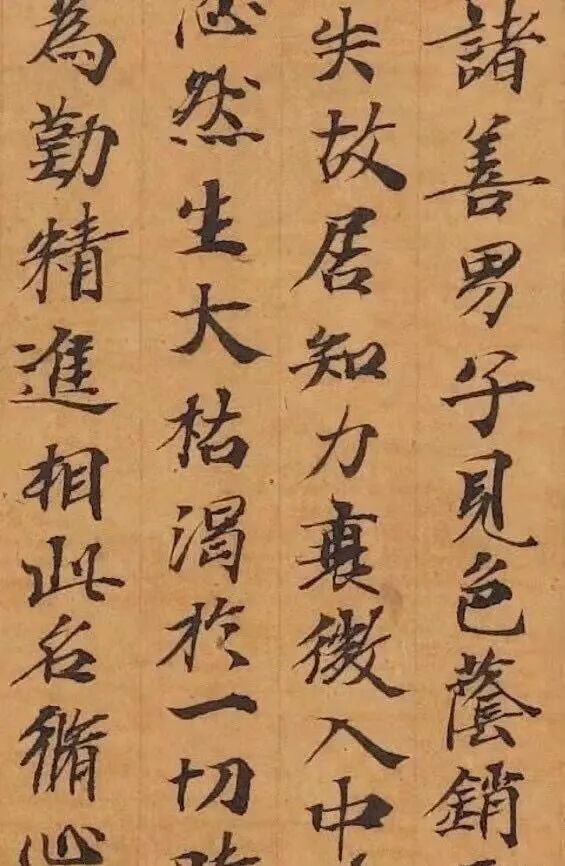 諸善男子見色蔭銷
失故居知力衰微入中
心然生大枯渴於一切
為勤精進相此名脩心